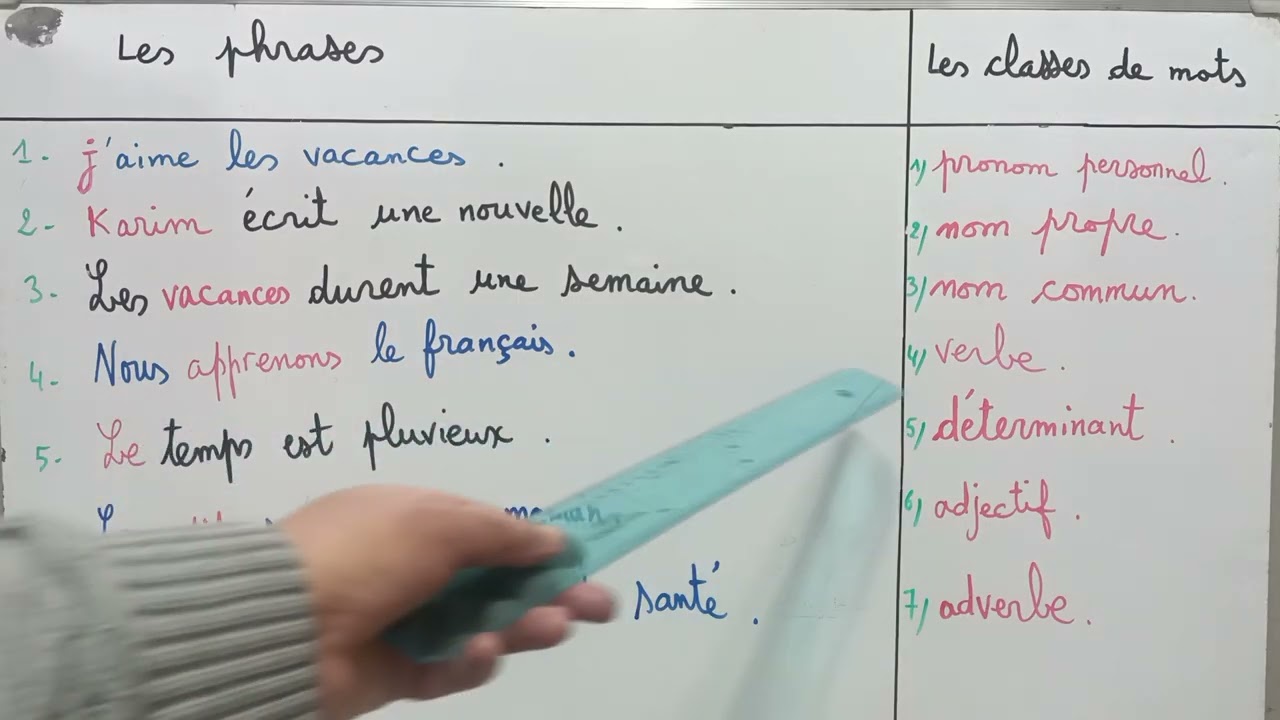 Les phrases
Les classes de mots
1. j'aime les vacances.
1) pronom personnel.
2- Karim écrit une nouvelle.
2) nom propre.
3. Les vacances durent une semaine.
3) nom commun.
4. Nous apprenons le français.
4) verbe.
5. Le temps est pluvieux.
5) déterminant.
6) adjectif.
santé.
7) adverbe.